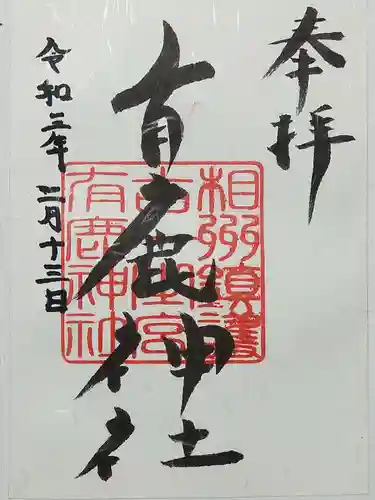 奉拝
有鹿神社
令和三年 二月十三日
相州鎮護
有鹿神社